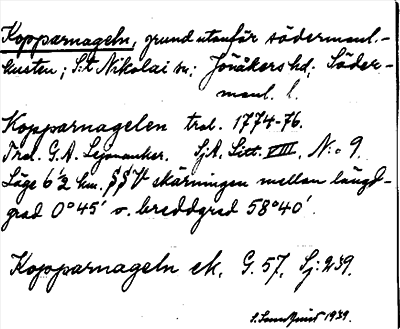 Kopparnageln, grund utanför södermanl.-
kusten; S:t Nikolai sn; Jönåkers hd; Söder-
manl. l.
Kopparnagelen trol. 1774-76.
Trol. G.A. Lejonanker. SjA. Litt. VIII, N:o 9.
Läge 6 1/2 km. SSV skärningen mellan längd-
grad 0°45' o. breddgrad 58°40'.
Kopparnageln ek. G. 57, Sj: 239.
S. Sundquist 1939.